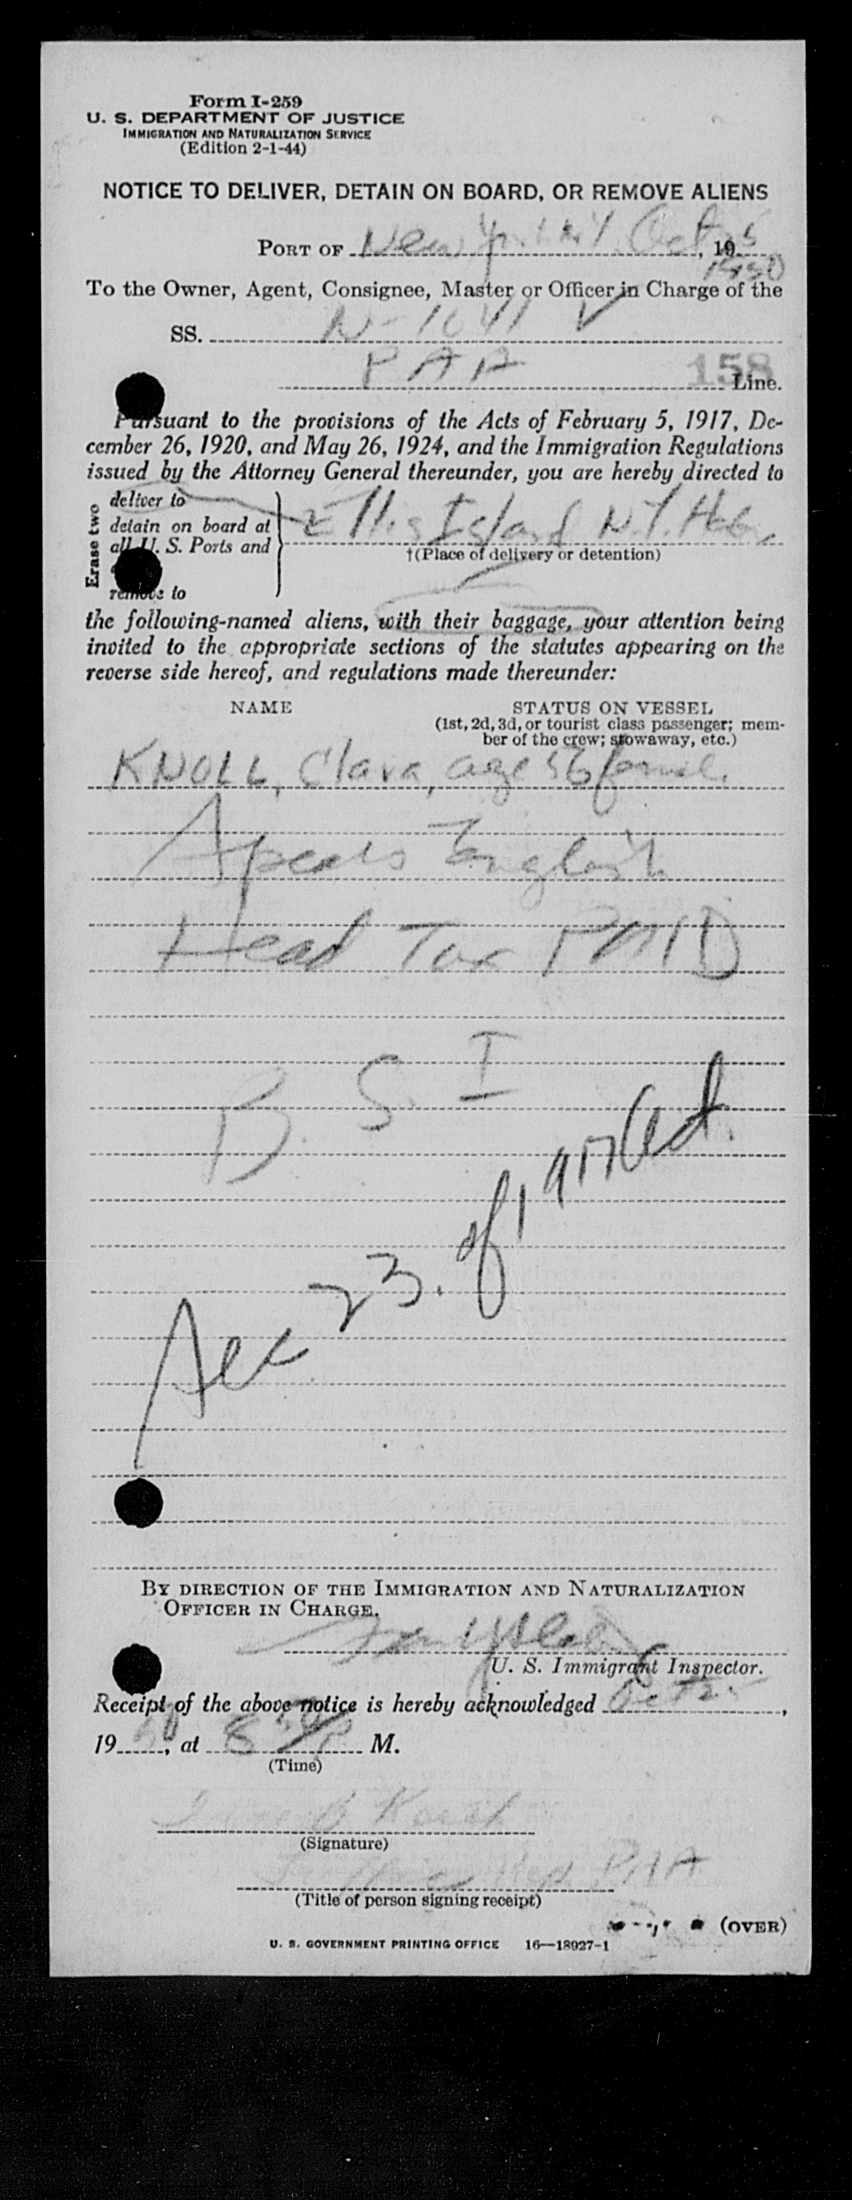 Form I-259
U. S. DEPARTMENT OF JUSTICE
IMMIGRATION AND NATURALIZATION SERVICE
(Edition 2-1-44)
NOTICE TO DELIVER, DETAIN ON BOARD, OR REMOVE ALIENS
PORT OF New York N.Y. Oct 25, 19
1950
To the Owner, Agent, Consignee, Master or Officer in Charge of the
SS. N-1041 V
PAA 158 Line.
Pursuant to the provisions of the Acts of February 5, 1917, De-
cember 26, 1920, and May 26, 1924, and the Immigration Regulations
issued by the Attorney General thereunder, you are hereby directed to
Erase two
deliver to
detain on board at
all U. S. Ports and
remove to
Ellis Island N.Y. Hbr.
†(Place of delivery or detention)
the following-named aliens, with their baggage, your attention being
invited to the appropriate sections of the statutes appearing on the
reverse side hereof, and regulations made thereunder:
NAME STATUS ON VESSEL
(1st, 2d, 3d, or tourist class passenger; mem-
ber of the crew; stowaway, etc.)
KNOLL, Clara, age 56
Speaks English
Head Tax PAID
B. S. I
Sec 23. of 1917 Act.
BY DIRECTION OF THE IMMIGRATION AND NATURALIZATION
OFFICER IN CHARGE.
U. S. Immigrant Inspector.
Receipt of the above notice is hereby acknowledged Oct 25,
19 50, at 8 P M.
(Time)
(Signature)
PAA
(Title of person signing receipt)
(OVER)
U. S. GOVERNMENT PRINTING OFFICE 16—18927-1